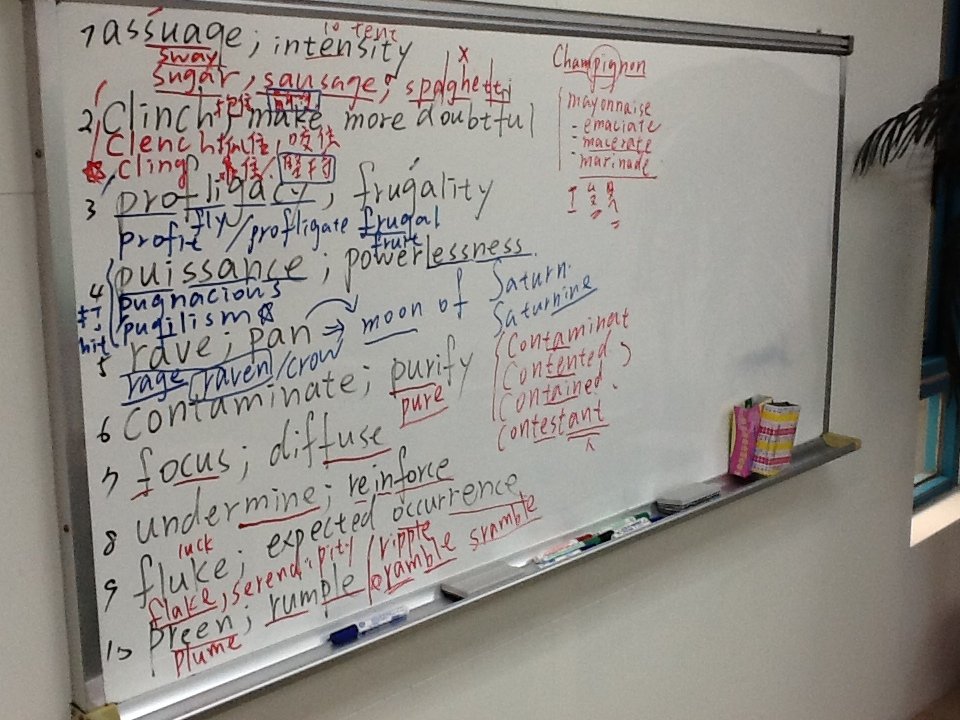 1 assuage; intensity
to tent
sway
sugar, sausage, spaghetti
x
2 Clinch; make more doubtful
Clench 抓住, 咬住
cling 堅守
3 profligacy; frugality
fly
profit / profligate frugal
fruit
4 puissance; powerlessness
pugnacious
打 pugilism
hit
5 rave; pan → moon of Saturn
Saturnine
rage raven/crow
6 contaminate; purify
pure
7 focus; diffuse
8 undermine; reinforce
9 fluke; expected occurrence
luck
flake, serendipity
10 preen; rumple / ripple
cramble sramble
plume
Champignon
mayonnaise
= emaciate
= macerate
- marinade
Contaminat
Contented
Contained
Contestant
人